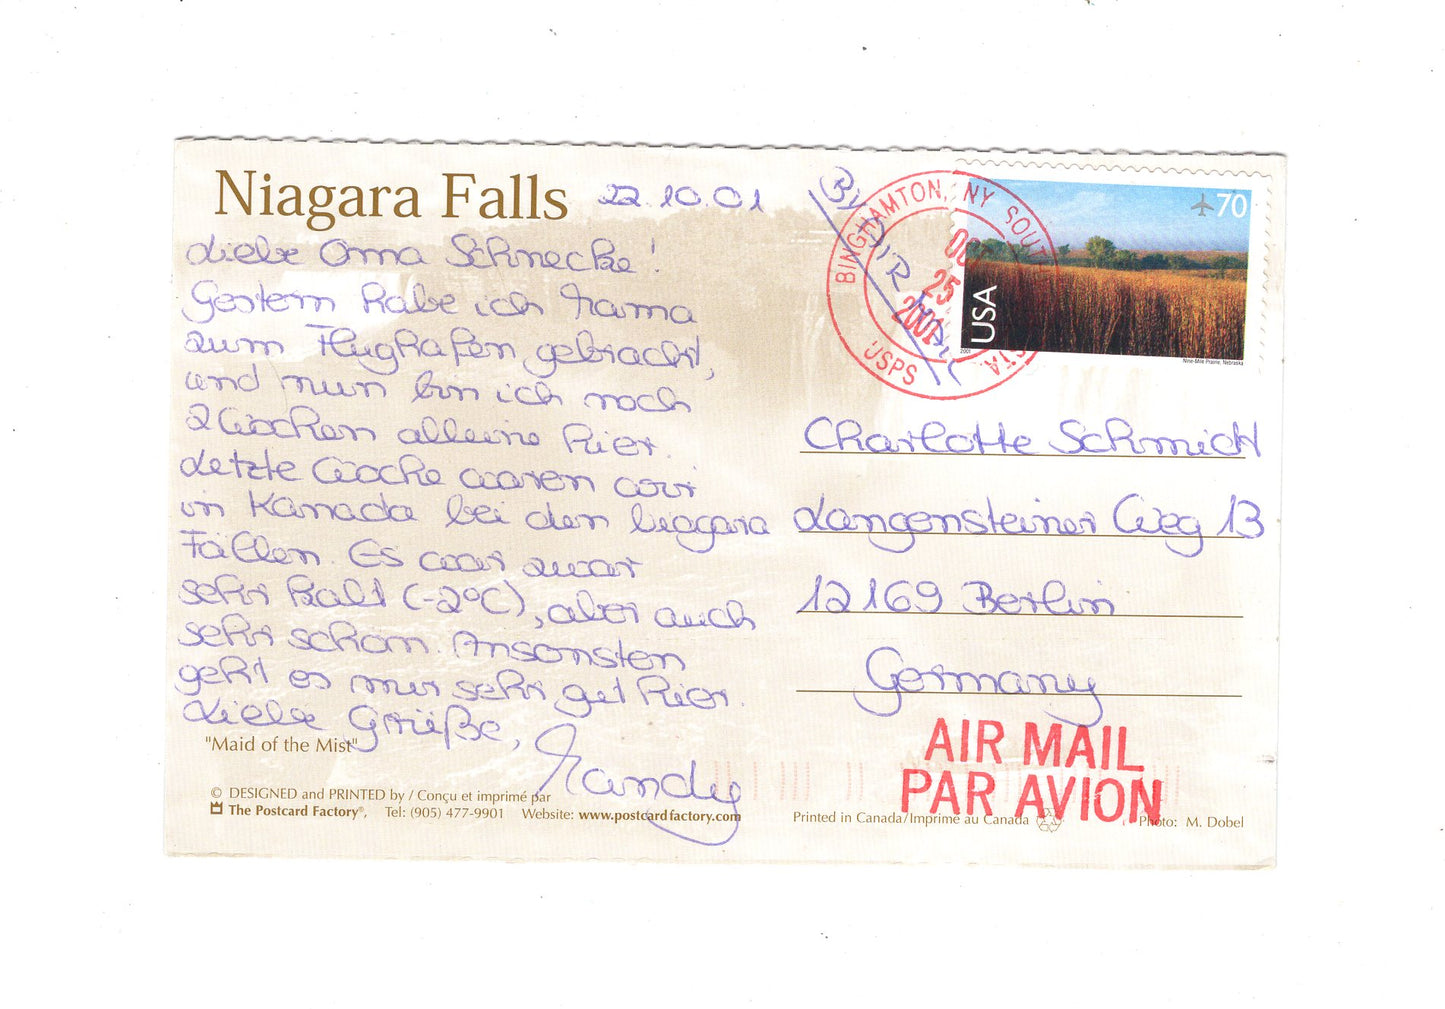 Niagara Falls 22.10.01
Liebe Oma Schnecke!
Gestern habe ich Mama
zum Flughafen gebracht,
und nun bin ich noch
2 Wochen alleine hier.
Letzte Woche waren wir
in Kanada bei den Niagara
Fällen. Es war zwar
sehr kalt (-2°C), aber auch
sehr schön. Ansonsten
geht es mir sehr gut hier.
Liebe Grüße,
Mandy
"Maid of the Mist"
© DESIGNED and PRINTED by / Conçu et imprimé par
The Postcard Factory®, Tel: (905) 477-9901 Website: www.postcardfactory.com
By AIR MAIL
BINGHAMTON, NY SOUTH STA.
25
2001
USPS
70
USA
2001
Nine-Mile Prairie, Nebraska
Charlotte Schmidt
Langensteiner Weg 13
12169 Berlin
Germany
AIR MAIL
PAR AVION
Printed in Canada/Imprimé au Canada Photo: M. Dobel